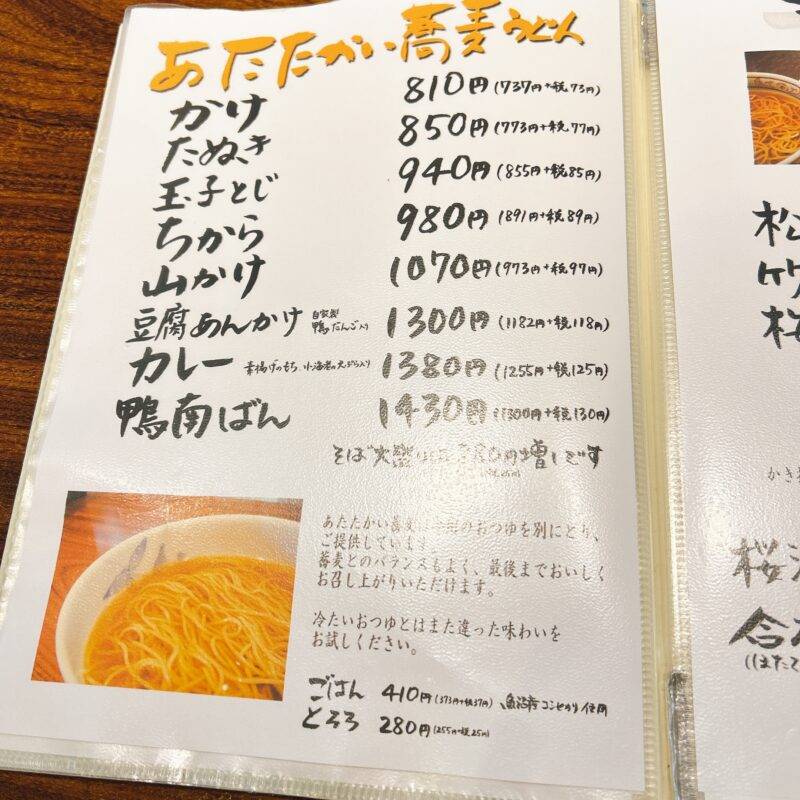 あたたかい蕎麦うどん
かけ 810円(737円+税73円)
たぬき 850円(773円+税77円)
玉子とじ 940円(855円+税85円)
ちから 980円(891円+税89円)
山かけ 1070円(973円+税97円)
豆腐あんかけ 自家製 鴨だんご入り 1300円(1182円+税118円)
カレー 素揚げのもち 小海老の天ぷら入り 1380円(1255円+税125円)
鴨南ばん 1430円(1300円+税130円)
そば大盛りは 円増しです
あたたかい蕎麦は専用のおつゆを別にとり、
ご提供しています。
蕎麦とのバランスもよく、最後までおいしく
お召し上がりいただけます。
冷たいおつゆとはまた違った味わいを
お試しください。
ごはん 410円(373円+税37円) 魚沼産コシヒカリ使用
とろろ 280円(255円+税25円)
松
竹
桜
かき
桜
合
(ほたて